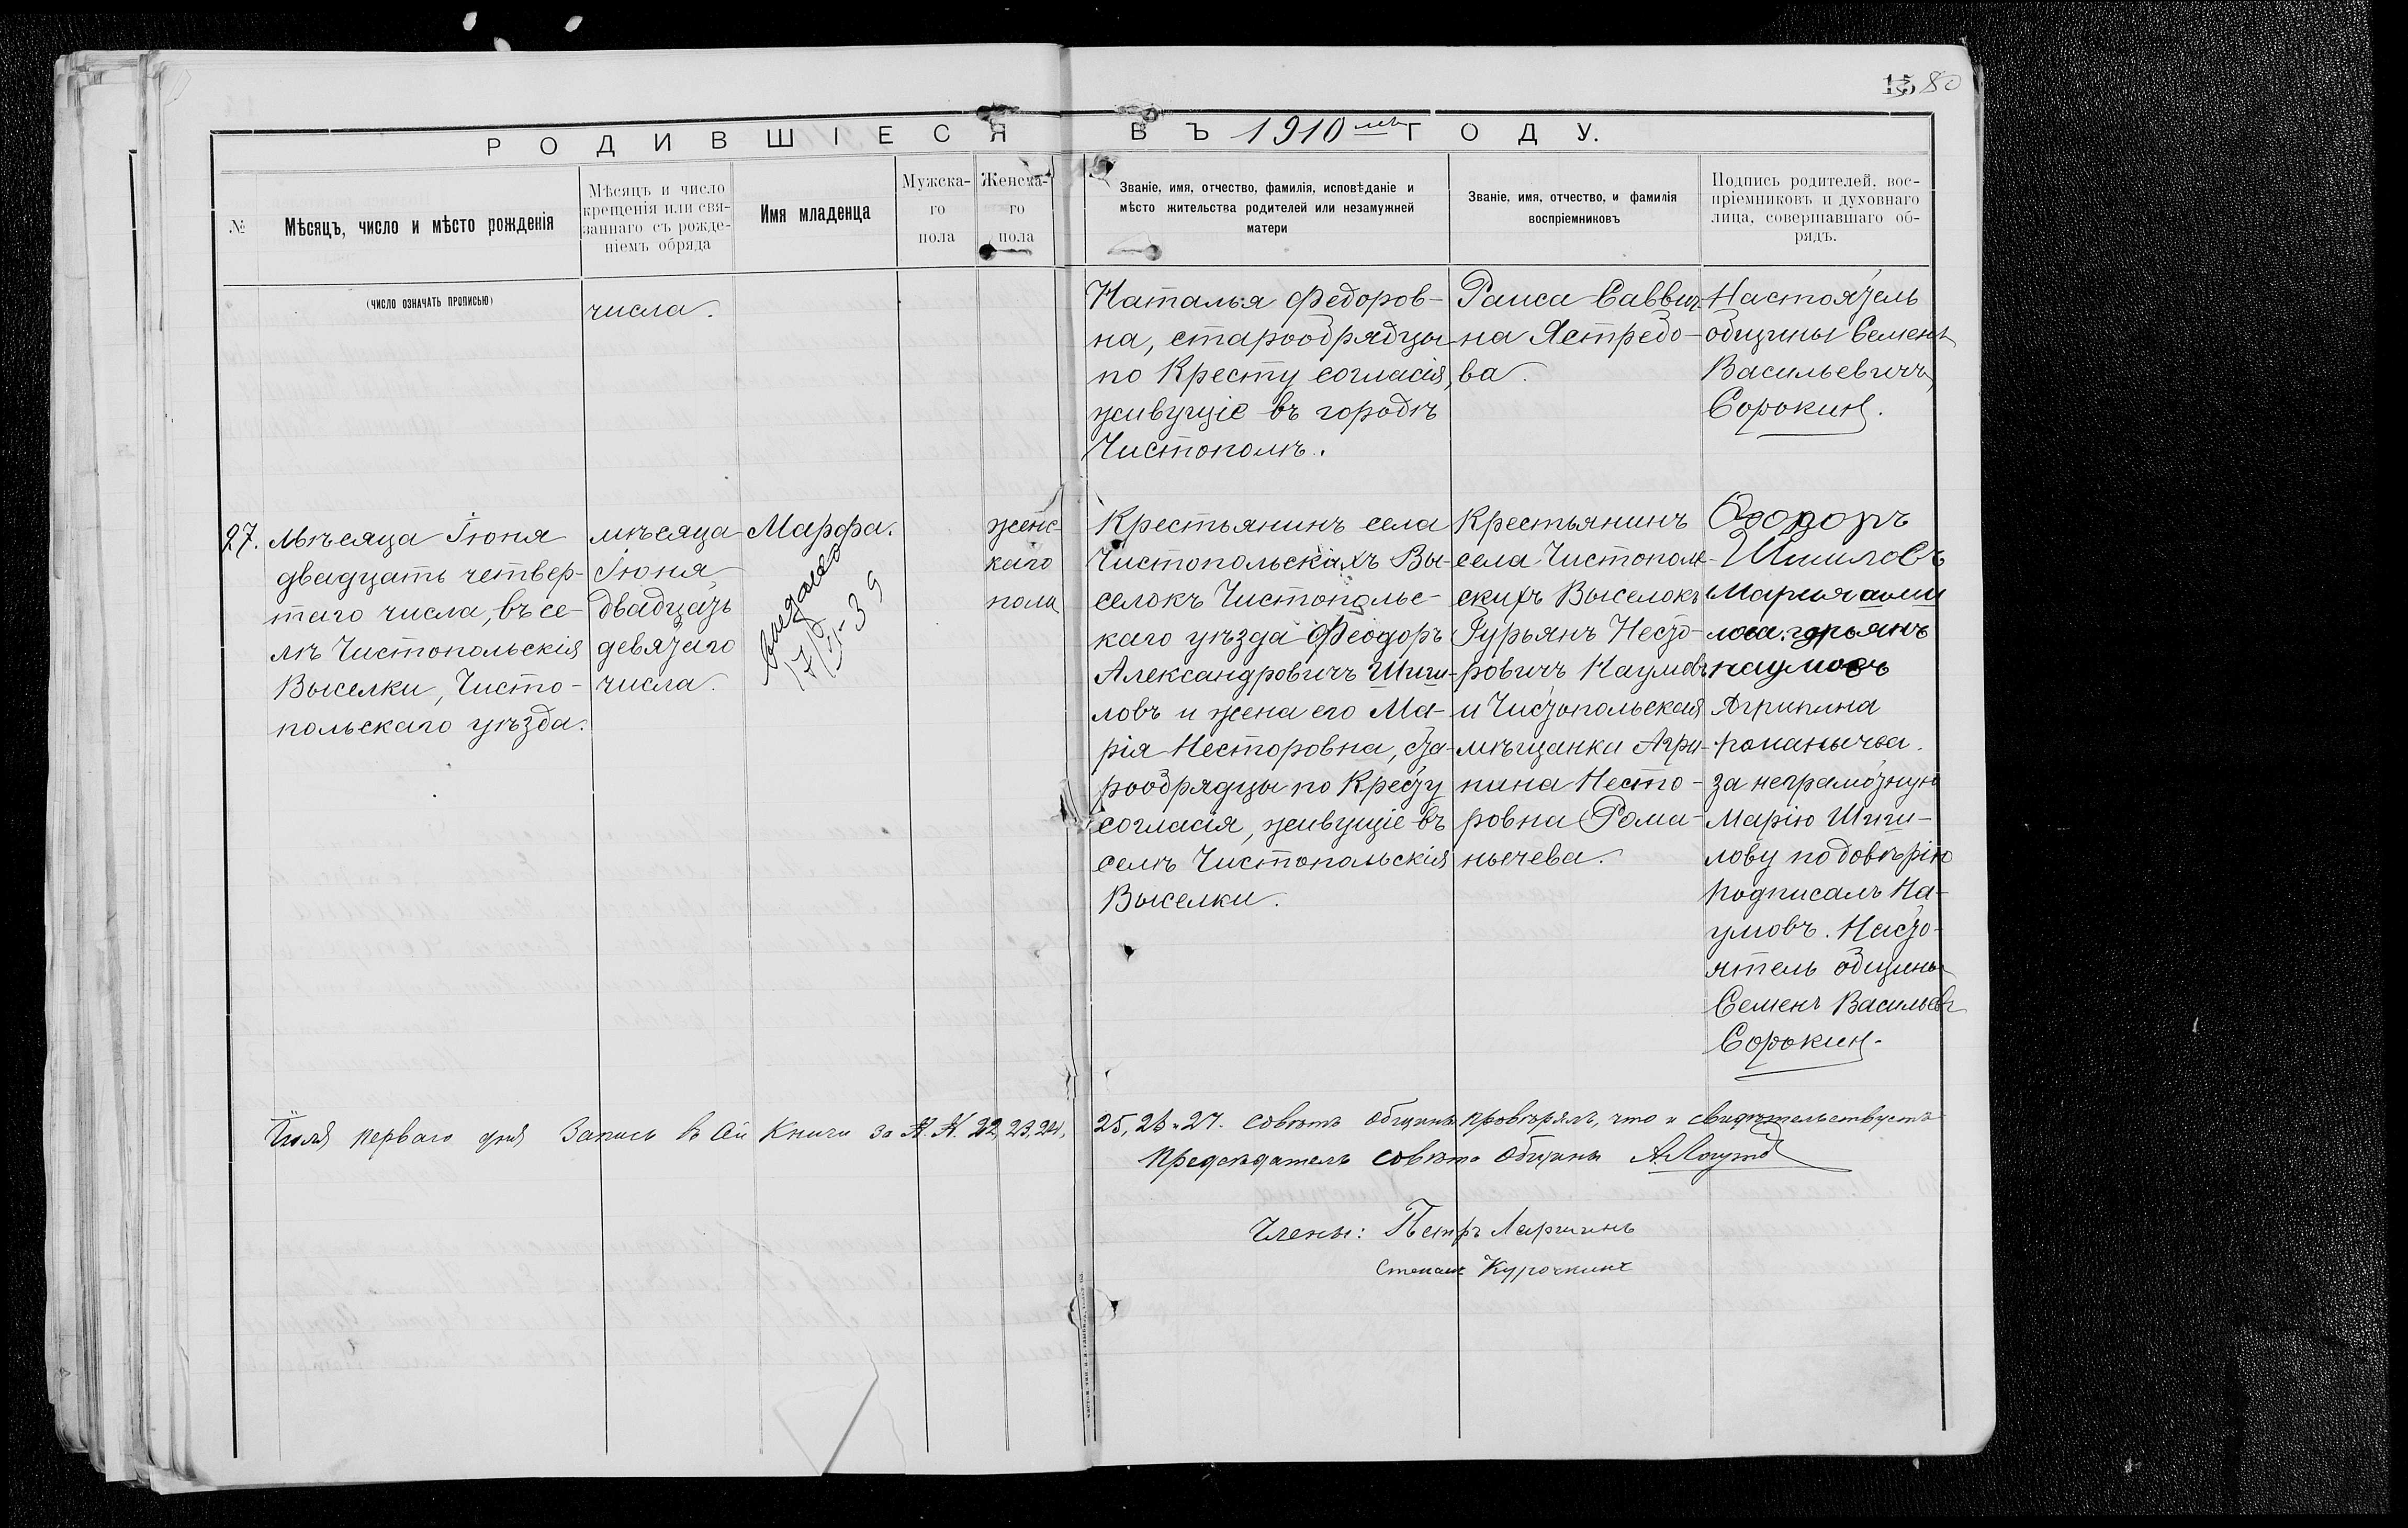 15 80
РОДИВШІЕСЯ ВЪ 1910 мъ ГОДУ.
№
Мѣсяцъ, число и мѣсто рожденія
Мѣсяцъ и число
крещенія или свя-
заннаго съ рожде-
ніемъ обряда
Имя младенца
Мужска-
го
пола
Женска-
го
пола
Званіе, имя, отчество, фамилія, исповѣданіе и
мѣсто жительства родителей или незамужней
матери
Званіе, имя, отчество, и фамилія
воспріемниковъ
Подпись родителей, вос-
пріемниковъ и духовнаго
лица, совершавшаго об-
рядъ.
(число означать прописью)
числа.
Наталья Федоров-
на, старообрядцы
по Кресту согласія,
живущіе въ городѣ
Чистополѣ.
Раиса Саввич-
на Ястребо-
ва.
Настоятель
общины Семенъ
Васильевичъ
Сорокин.
27.
Мѣсяца Іюня
двадцать четвер-
таго числа, въ се-
лѣ Чистопольскія
Выселки, Чисто-
польскаго уѣзда.
мѣсяца
Іюня
двадцать
девятаго
числа.
Марфа.
17/
5-39
женс-
каго
пола
Крестьянинъ села
Чистопольскихъ Вы-
селокъ Чистопольс-
каго уѣзда Феодоръ
Александровичъ Шиши-
ловъ и жена его Ма-
рія Несторовна, ста-
рообрядцы по Кресту
согласія, живущіе въ
селѣ Чистопольскія
Выселки.
Крестьянинъ
села Чистополь-
скихъ Выселокъ
Гурьянъ Несто-
ровичъ Наумовъ
и Чистопольская
мѣщанка Агри-
пина Несто-
ровна Рома-
нычева.
Феодоръ
Шишловъ
Мария шиши
лова. гурьянъ
наумовъ
Агрипина
романычва.
за неграмотную
Марію Шиши-
лову по довѣрію
подписалъ На-
умовъ. Насто-
ятель общины
Семенъ Васильевъ
Сорокин.
Іюля перваго дня Запись въ сей Книги за №.№. 22, 23, 24, 25, 26 и 27. совѣтъ общины провѣрялъ, что и свидѣтельствуетъ
Предсѣдатель совѣта Общины
Члены: Петръ Ларшинъ
Степанъ Курочкинъ